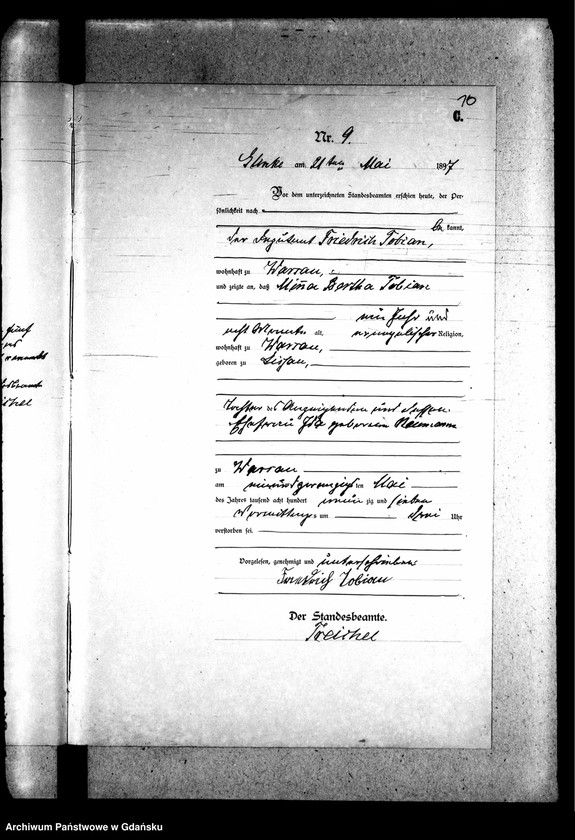 10
C.
Nr. 9.
am 21ten Mai 1897
Vor dem unterzeichneten Standesbeamten erschien heute, der Per-
sönlichkeit nach
be kannt,
der Friedrich Tobian,
wohnhaft zu Warrau,
und zeigte an, daß Minna Bertha Tobian
ein Jahr und
acht Monate alt, evangelischer Religion,
wohnhaft zu Warrau,
geboren zu
Tochter des und dessen
Ehefrau geborene Naumann
zu Warrau
am ten Mai
des Jahres tausend acht hundert neun zig und sieben
Vormittags um drei Uhr
verstorben sei.
Vorgelesen, genehmigt und unterschrieben
Friedrich Tobian
Der Standesbeamte.
Treichel
Archiwum Państwowe w Gdańsku